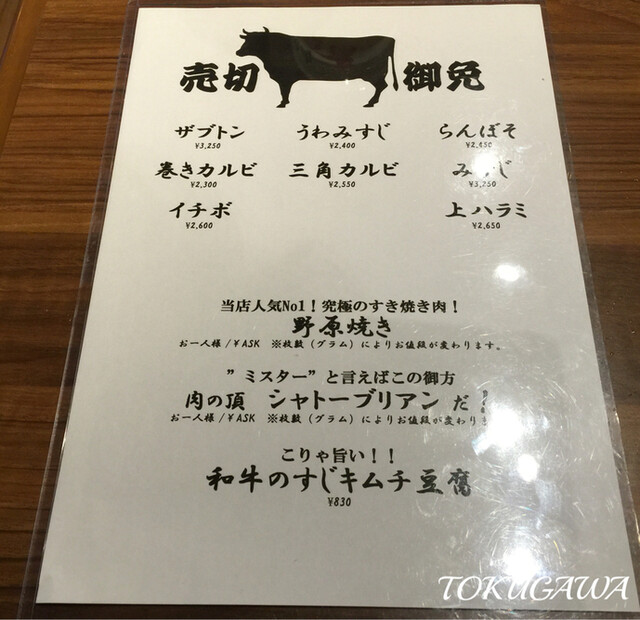 売切 御免
ザブトン うわみすじ らんぼそ
¥3,250 ¥2,400
巻きカルビ 三角カルビ みすじ
¥2,300 ¥2,550 ¥3,250
イチボ 上ハラミ
¥2,600 ¥2,650
当店人気No1！究極のすき焼き肉！
野原焼き
お一人様/¥ASK ※枚数（グラム）によりお値段が変わります。
”ミスター”と言えばこの御方
肉の頂 シャトーブリアン だ
お一人様/¥ASK ※枚数（グラム）によりお値段が変わりま
こりゃ旨い！！
和牛のすじキムチ豆腐
¥830
TOKUGAWA